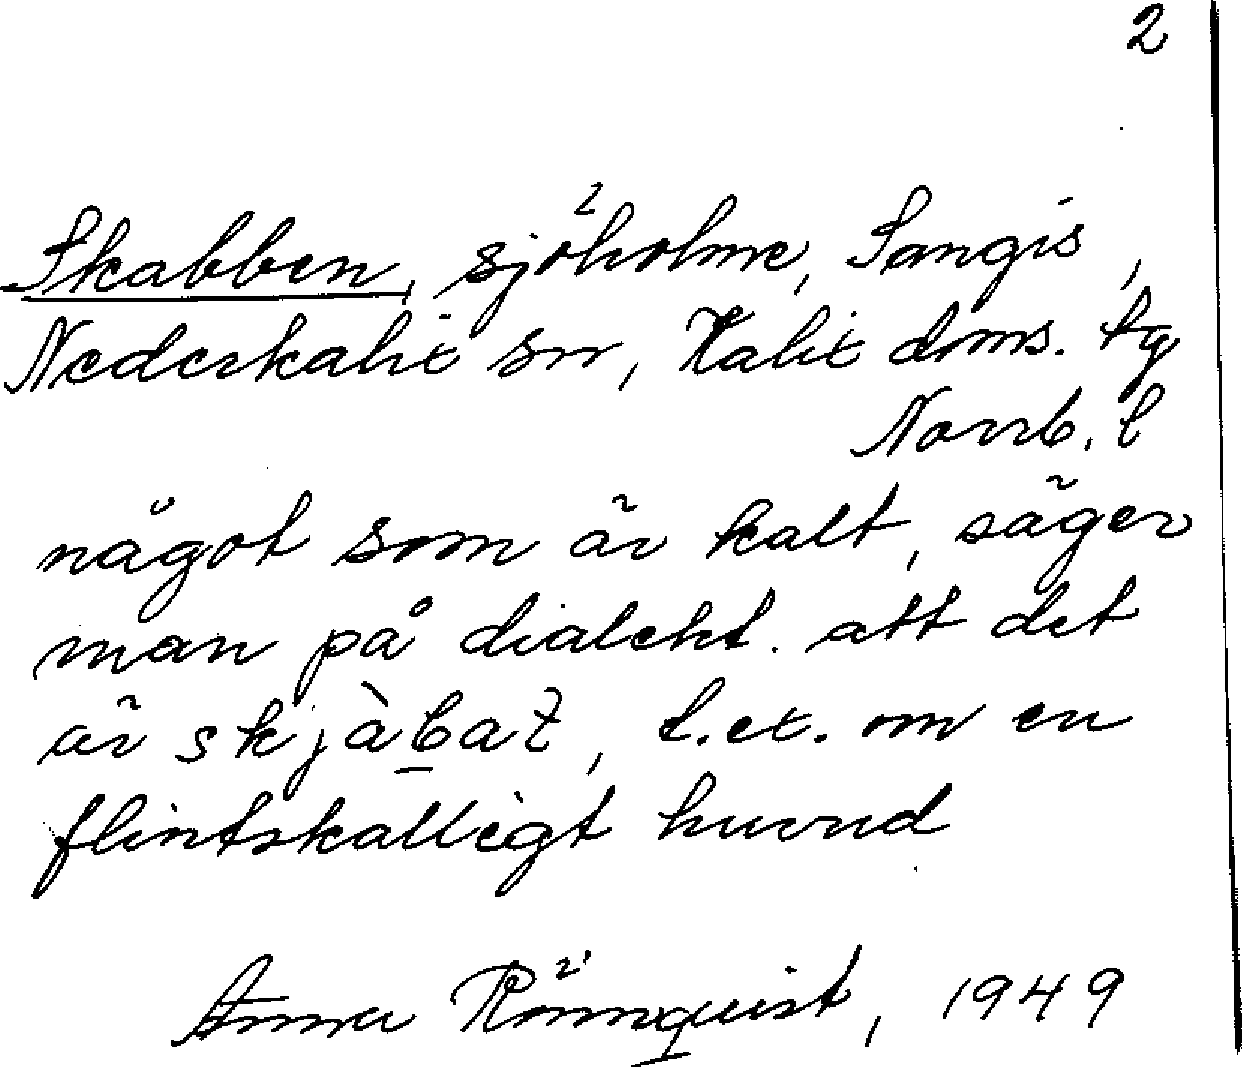 2
Skabben, sjöholme, Sangis,
Nederkalix sn, Kalix doms. tg
Norrb. l
något som är kalt, säger
man på dialekt. att det
är skjàbat, t.ex. om en
flintskalligt huvud
Anna Rönnquist, 1949